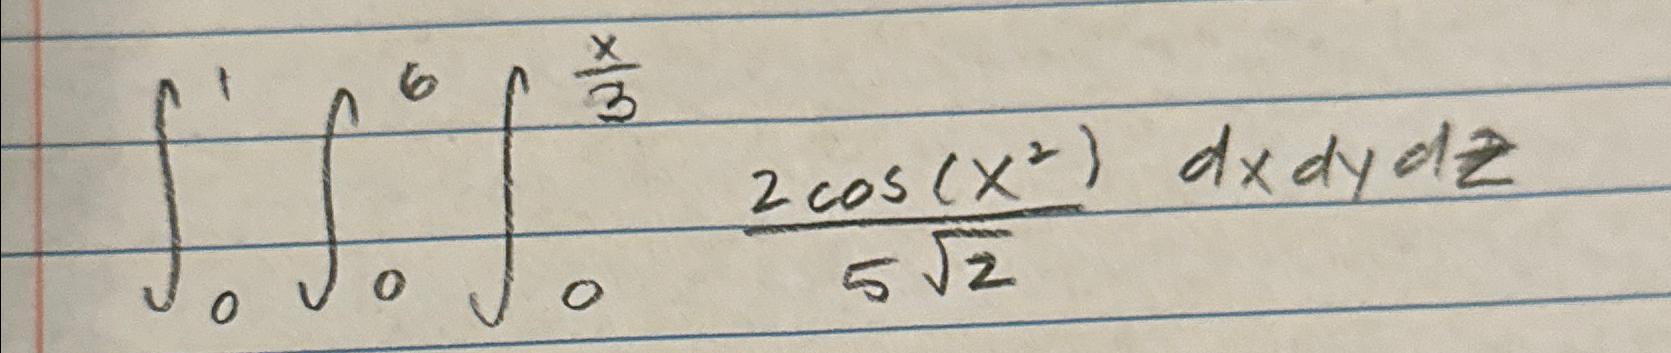 $\int_0^1 \int_0^6 \int_0^{\frac{x}{3}} \frac{2\cos(x^2)}{5\sqrt{2}} \, dx \, dy \, dz$